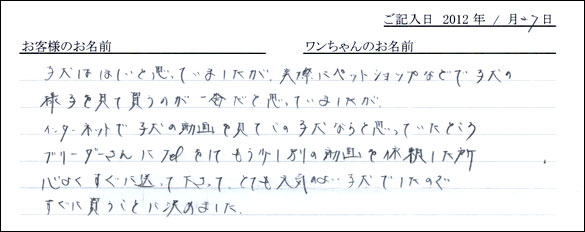 ご記入日 2012年 1月27日
お客様のお名前 ワンちゃんのお名前
子犬はほしいと思っていましたが、実際にペットショップなどで子犬の
様子を見て買うのが一番だと思っていましたが、
インターネットで子犬の動画を見てこの子犬ならと思っていたところ
ブリーダーさんにTelをしてもう少し別の動画を依頼した所
心よくすぐに送って下さって、とても元気のよい子犬でしたので
すぐに買うことに決めました。